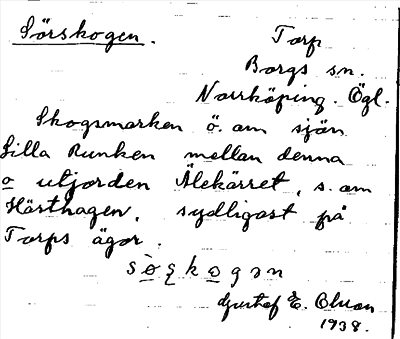 Sörskogen. Torp
Borgs sn.
Norrköping. Ögl.
Skogsmarken ö. om sjön
Lilla Runken mellan denna
o utjorden Älekärret, s. om
Hästhagen, sydligast på
Torps ägor.
sö̱ʂko̱gən
Gustaf E.
1938.